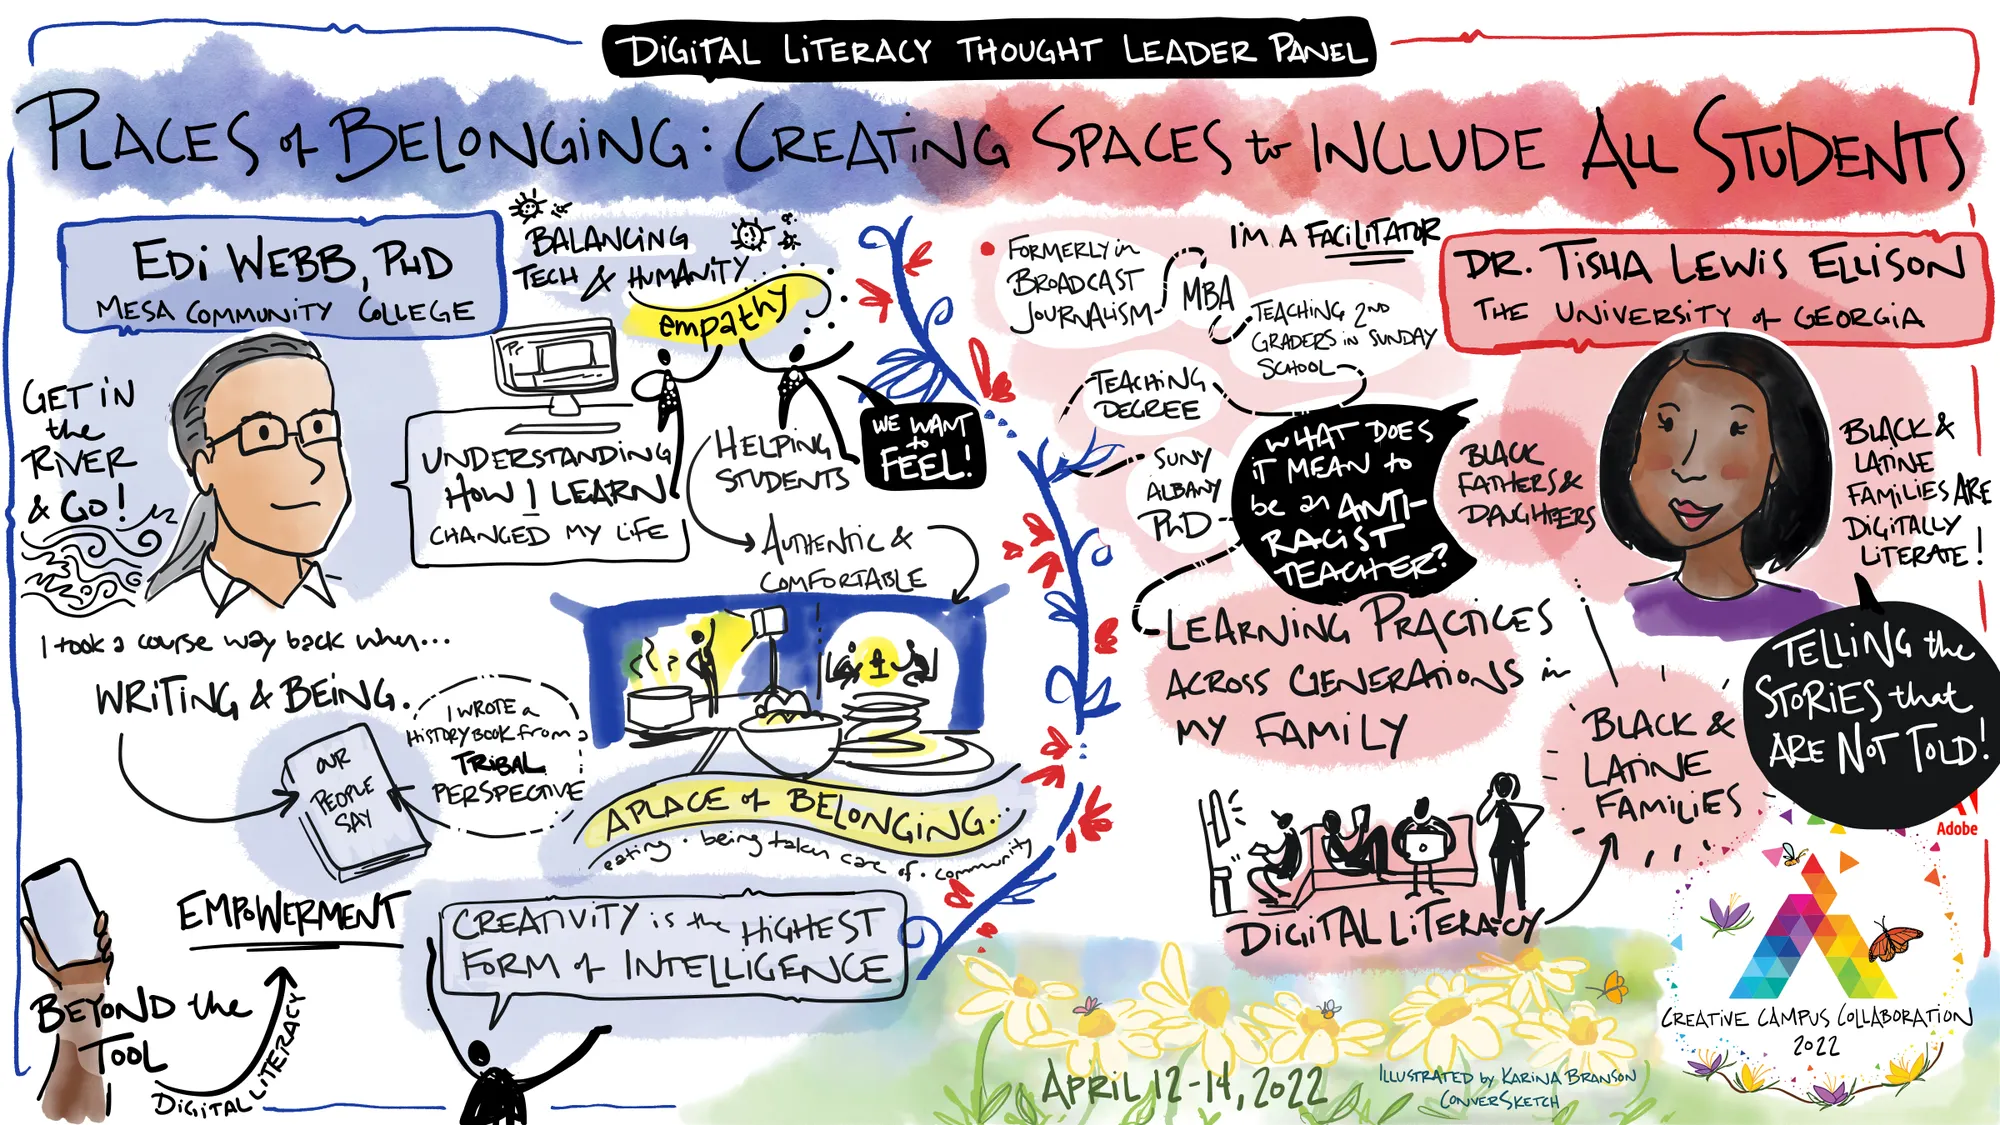 DIGITAL LITERACY THOUGHT LEADER PANEL
PLACES of BELONGING: CREATING SPACES to INCLUDE ALL STUDENTS
EDI WEBB, PHD
MESA COMMUNITY COLLEGE
GET IN
the
RIVER
& GO!
BALANCING
TECH & HUMANITY...
empathy
Pr
UNDERSTANDING
HOW I LEARN
CHANGED MY LIFE
HELPING
STUDENTS
WE WANT
to
FEEL!
AUTHENTIC &
COMFORTABLE
I took a course way back when...
WRITING & BEING.
OUR
PEOPLE
SAY
I WROTE a
HISTORY BOOK from a
TRIBAL
PERSPECTIVE
A PLACE of BELONGING...
eating · being taken care of · community
EMPOWERMENT
BEYOND the
TOOL
DIGITAL LITERACY
CREATIVITY is the HIGHEST
FORM of INTELLIGENCE
FORMERLY in
BROADCAST
JOURNALISM
MBA
I'M A FACILITATOR
TEACHING 2ND
GRADERS IN SUNDAY
SCHOOL
TEACHING
DEGREE
SUNY
ALBANY
PhD
WHAT DOES
iT MEAN to
be an ANTI-
RACIST
TEACHER?
LEARNING PRACTICES
ACROSS GENERATIONS in
MY FAMILY
DR. TISHA LEWIS ELLISON
THE UNIVERSITY of GEORGIA
BLACK
FATHERS &
DAUGHTERS
BLACK &
LATINE
FAMILIES ARE
DIGITALLY
LITERATE!
TELLING the
STORIES that
ARE NOT TOLD!
BLACK &
LATINE
FAMILIES
DIGITAL LITERACY
Adobe
CREATIVE CAMPUS COLLABORATION
2022
APRIL 12-14, 2022
ILLUSTRATED by KARINA BRANSON
CONVERSKETCH